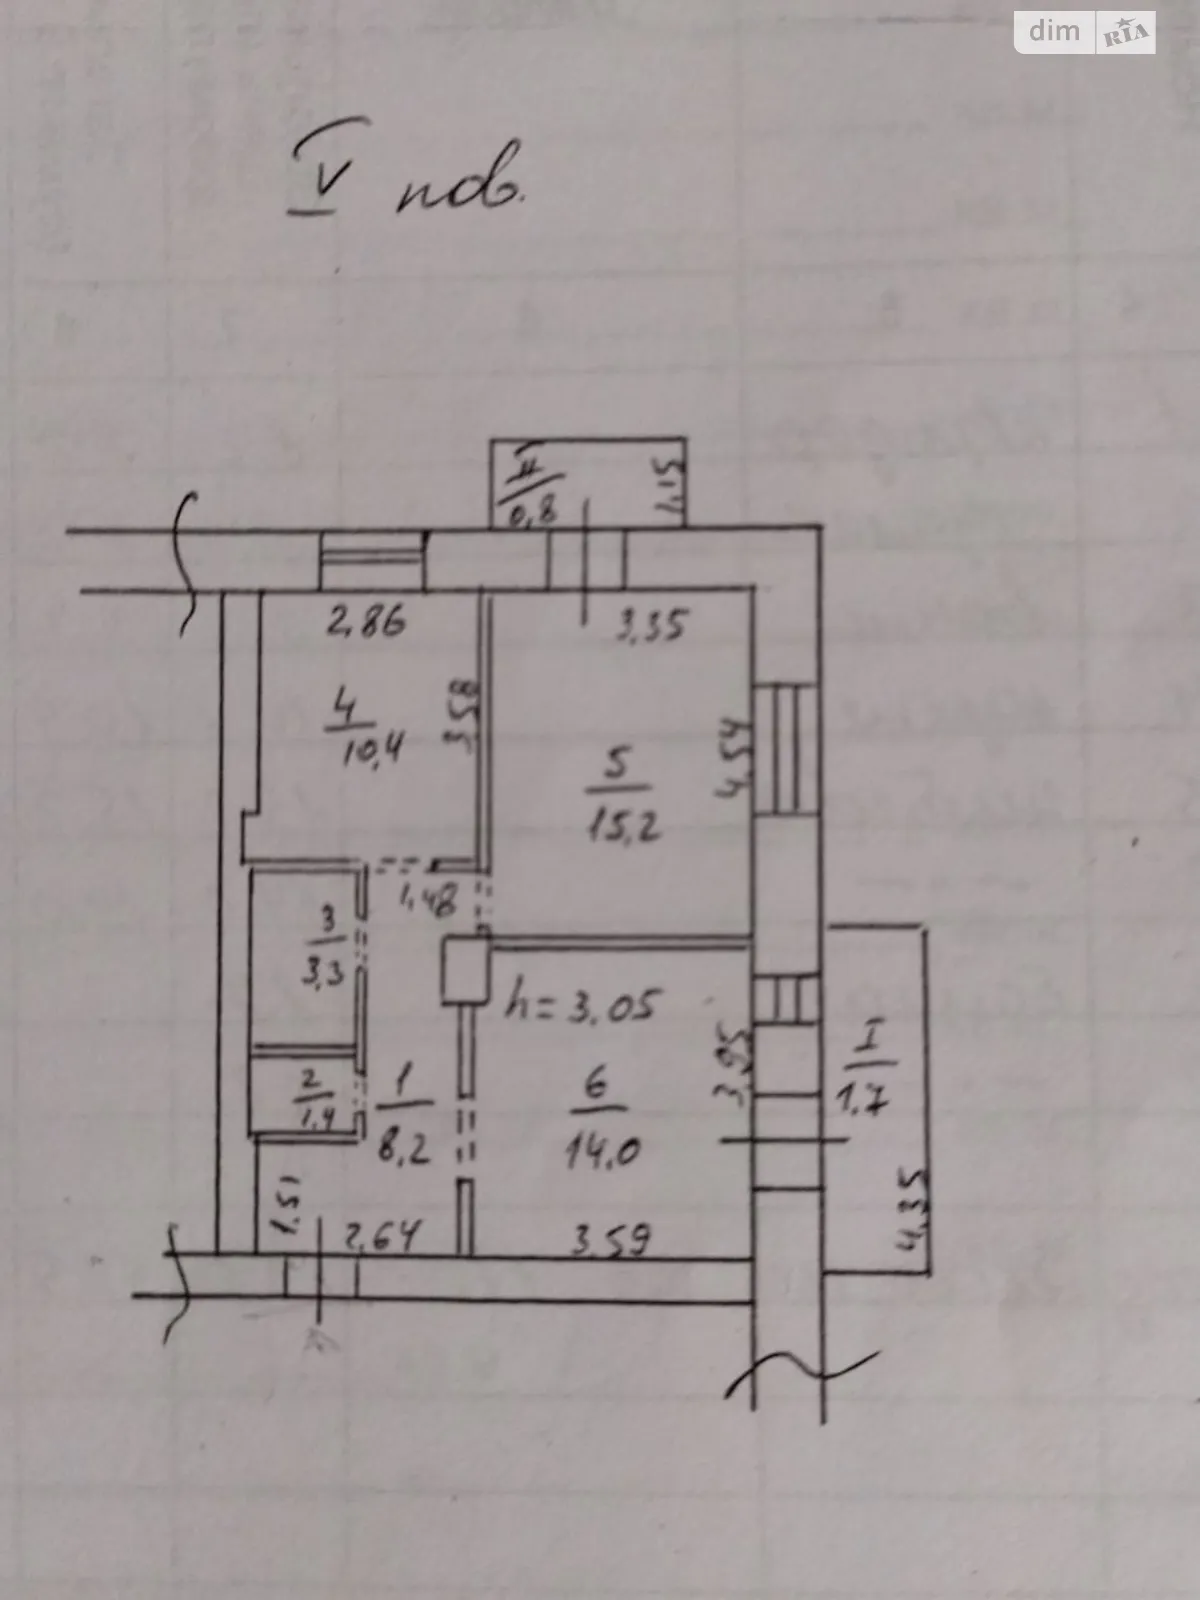 dim RIA
IV пов.
II
0,8
1,15
2,86
3,35
4
10,4
3,58
5
15,2
4,54
1,48
3
3,3
h=3.05
2
1,4
1
8,2
6
14.0
3,95
I
1.7
1.51
2,64
3.59
4.35